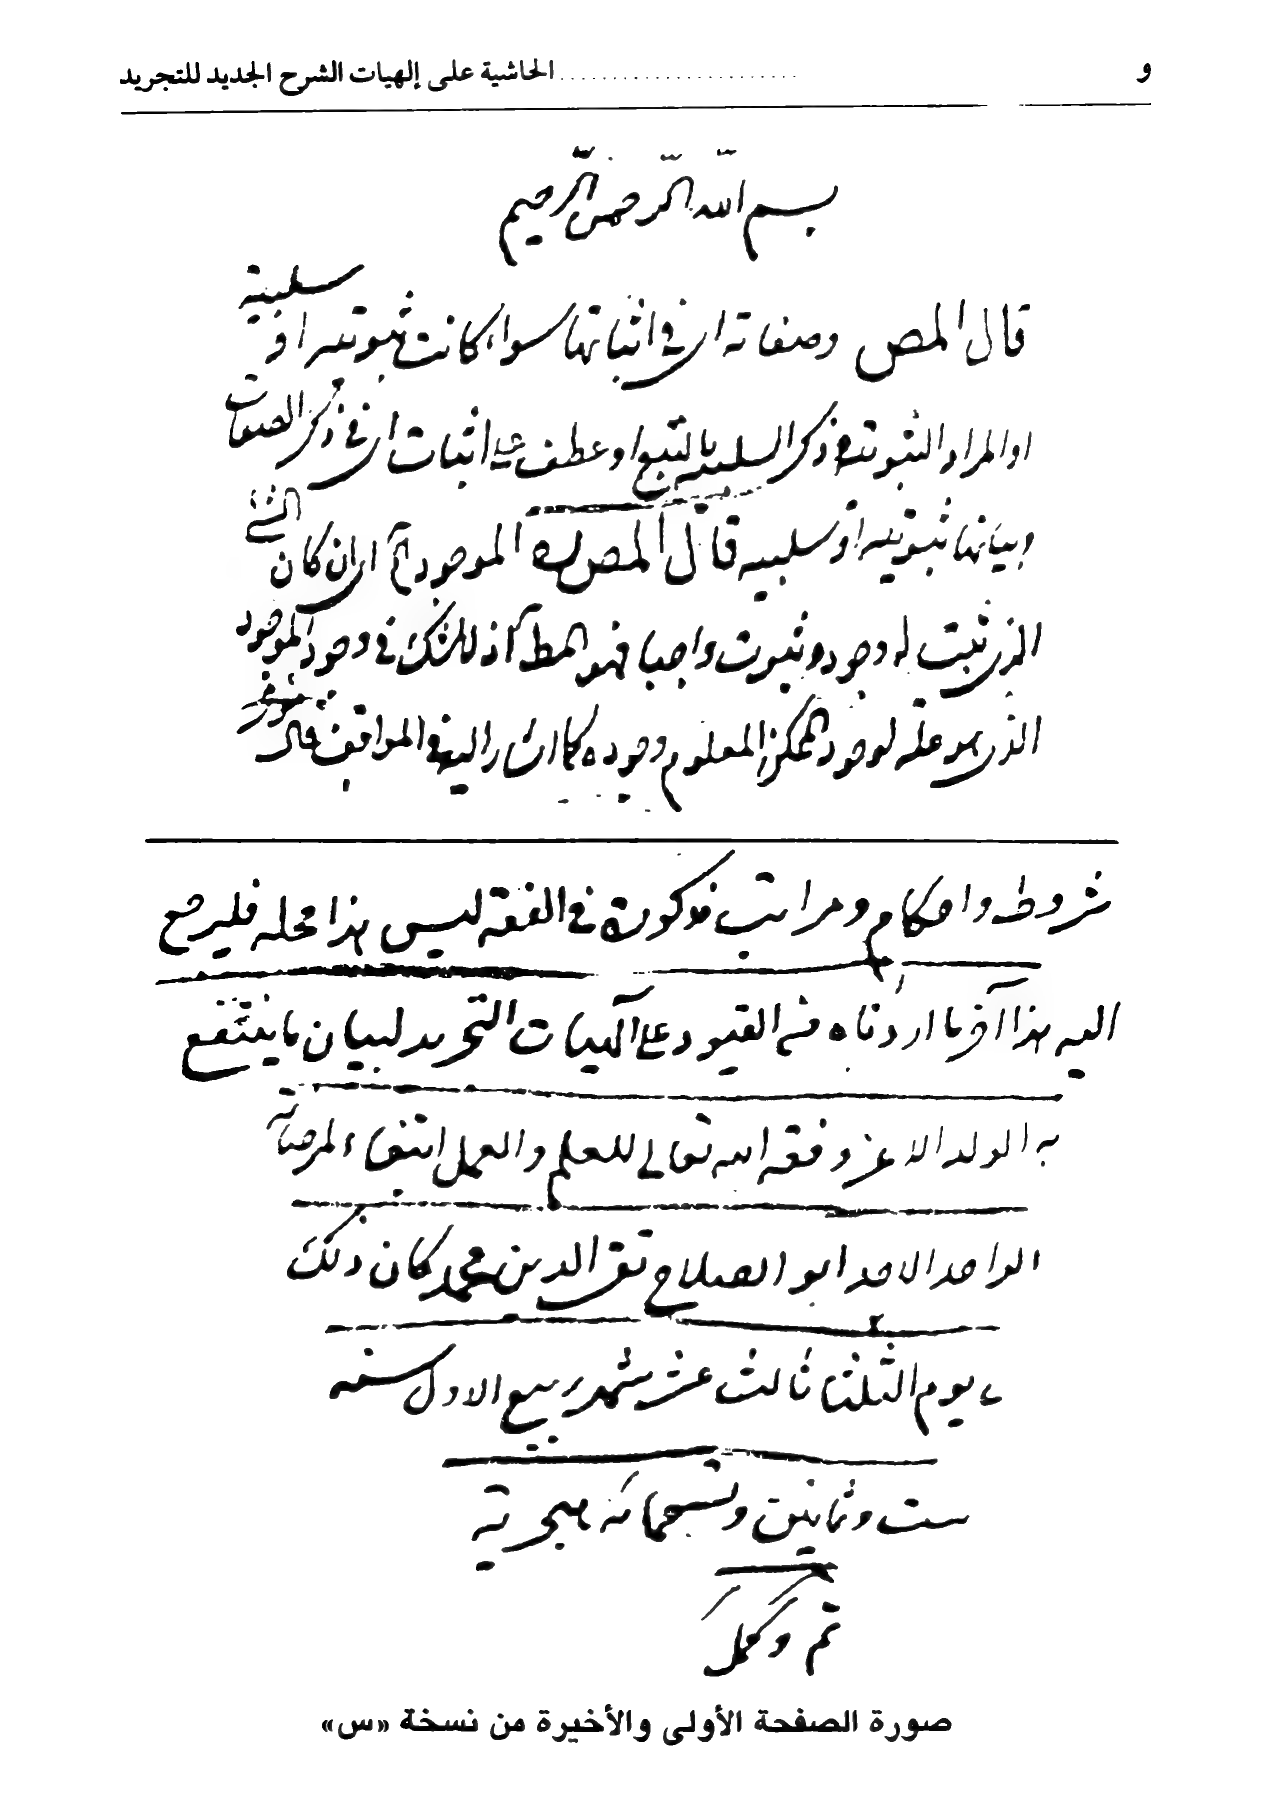 و .................... الحاشية على إلهيات الشرح الجديد للتجريد
بسم الله الرحمن الرحيم
قال المص وصفاته اى فى اثباتها سواء كانت ثبوتيه او سلبية
او المراد الثبوتيه وذكر السلبيه بالتبع او عطف على اثبات اى فى ذكر الصفات
وبيانها ثبوتيه او سلبيه قال المصره الموجود آه اى ان كان الشئ
الذى ثبت له وجود وثبوت واجبا فهو المط آذ لا شك فى وجود الموجود
الذى هو علة لوجود الممكن المعلوم وجوده كما اشار اليه فى المواقف قال
شروط واحكام ومراتب مذكورة فى الفقه ليس هذا محله فليرجع
اليه هذا آخر ما اردناه من القيود على آلهيات التجريد لبيان ما ينتفع
به الولد الاعز وفقه الله تعالى للعلم والعمل ابتغاء لمرضاته
الواحد الاحد ابو الصلاح تقى الدين محمد كان ذلك
يوم الثلثا ثالث عشر شهر ربيع الاول سنه
ست وثمانين وتسعمائه هجرية
تم وكمل
صورة الصفحة الأولى والأخيرة من نسخة «س»